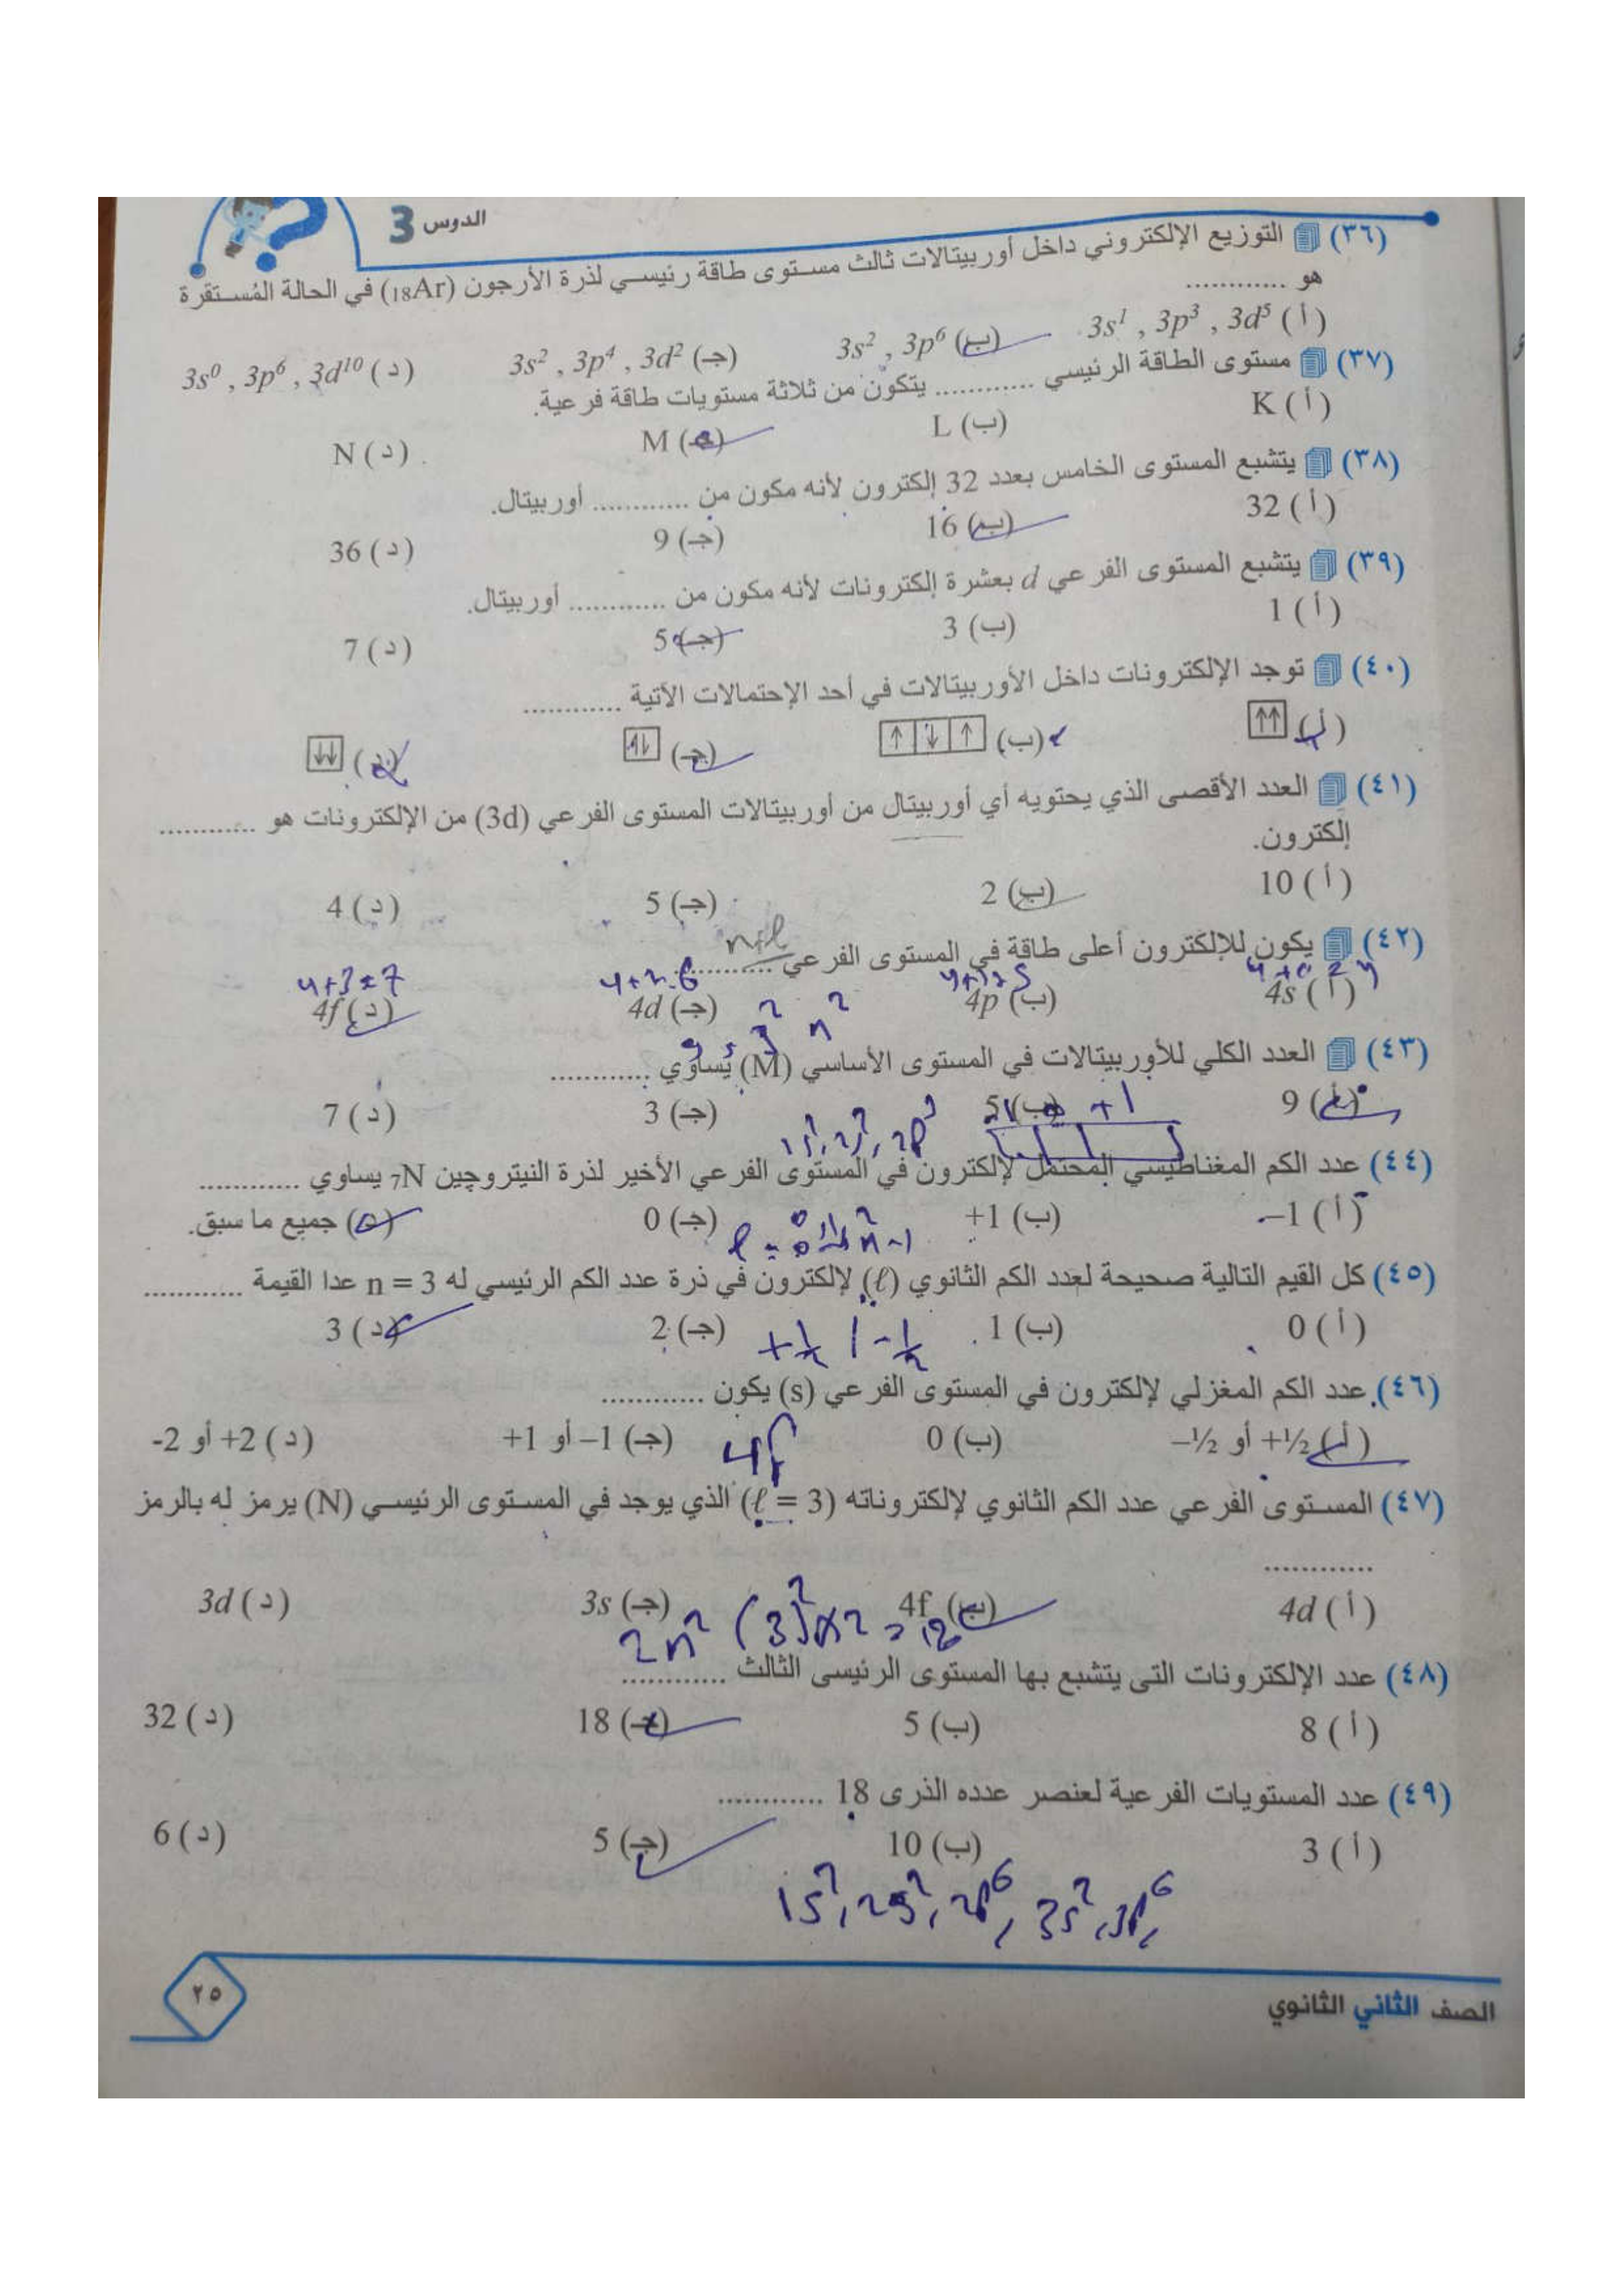 الدوس 3
(٣٦) التوزيع الإلكتروني داخل أوربيتالات ثالث مستوى طاقة رئيسي لذرة الأرجون (18Ar) في الحالة المُستقرة
هو ............
(أ) 3s1 , 3p3 , 3d5 (ب) 3s2 , 3p6 (جـ) 3s2 , 3p4 , 3d2 (د) 3s0 , 3p6 , 3d10
(٣٧) مستوى الطاقة الرئيسي ............ يتكون من ثلاثة مستويات طاقة فرعية.
(أ) K (ب) L (جـ) M (د) N
(٣٨) يتشبع المستوى الخامس بعدد 32 إلكترون لأنه مكون من ............ أوربيتال.
(أ) 32 (ب) 16 (جـ) 9 (د) 36
(٣٩) يتشبع المستوى الفرعي d بعشرة إلكترونات لأنه مكون من ............ أوربيتال.
(أ) 1 (ب) 3 (جـ) 5 (د) 7
(٤٠) توجد الإلكترونات داخل الأوربيتالات في أحد الإحتمالات الآتية ............
(أ) ↑↑ (ب) ↑ ↓ ↑ (جـ) ↑↓ (د) ↓↓
(٤١) العدد الأقصى الذي يحتويه أي أوربيتال من أوربيتالات المستوى الفرعي (3d) من الإلكترونات هو ............
إلكترون.
(أ) 10 (ب) 2 (جـ) 5 (د) 4
n+ℓ
(٤٢) يكون للإلكترون أعلى طاقة في المستوى الفرعي ............
4+0=4 4+1=5 4+2=6 4+3=7
(أ) 4s (ب) 4p (جـ) 4d (د) 4f
n2 32 = 9
(٤٣) العدد الكلي للأوربيتالات في المستوى الأساسي (M) يساوي ............
(أ) 9 (ب) 5 (جـ) 3 (د) 7
1s2, 2s2, 2p3 -1 0 +1
(٤٤) عدد الكم المغناطيسي المحتمل لإلكترون في المستوى الفرعي الأخير لذرة النيتروچين 7N يساوي ............
(أ) –1 (ب) +1 (جـ) 0 (د) جميع ما سبق.
(٤٥) كل القيم التالية صحيحة لعدد الكم الثانوي (ℓ) لإلكترون في ذرة عدد الكم الرئيسي له n = 3 عدا القيمة ............
(أ) 0 (ب) 1 (جـ) 2 (د) 3
+½ | -½
(٤٦) عدد الكم المغزلي لإلكترون في المستوى الفرعي (s) يكون ............
(أ) +½ أو –½ (ب) 0 (جـ) –1 أو +1 (د) +2 أو -2
4f
(٤٧) المستوى الفرعي عدد الكم الثانوي لإلكتروناته (ℓ = 3) الذي يوجد في المستوى الرئيسي (N) يرمز له بالرمز
............
(أ) 4d (ب) 4f (جـ) 3s (د) 3d
2n2 (3)2×2 = 18
(٤٨) عدد الإلكترونات التى يتشبع بها المستوى الرئيسى الثالث ............
(أ) 8 (ب) 5 (جـ) 18 (د) 32
(٤٩) عدد المستويات الفرعية لعنصر عدده الذرى 18 ............
(أ) 3 (ب) 10 (جـ) 5 (د) 6
1s2, 2s2, 2p6, 3s2, 3p6,
الصف الثاني الثانوي
٢٥